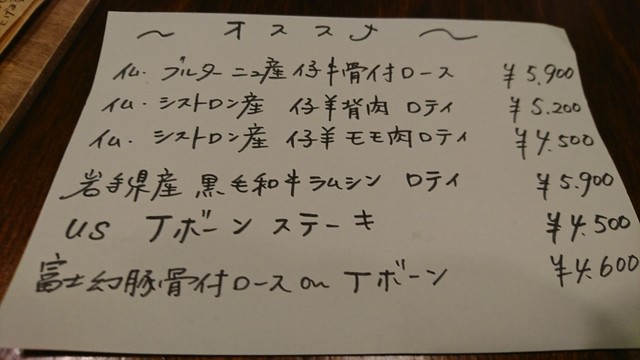 ～ オススメ ～
仏. ブルターニュ産 仔牛骨付ロース ¥5.900
仏. シストロン産 仔羊背肉 ロティ ¥5.200
仏. シストロン産 仔羊モモ肉ロティ ¥4.500
岩手県産 黒毛和牛ラムシン ロティ ¥5.900
US Tボーンステーキ ¥4.500
富士幻豚骨付ロース on Tボーン ¥4.600